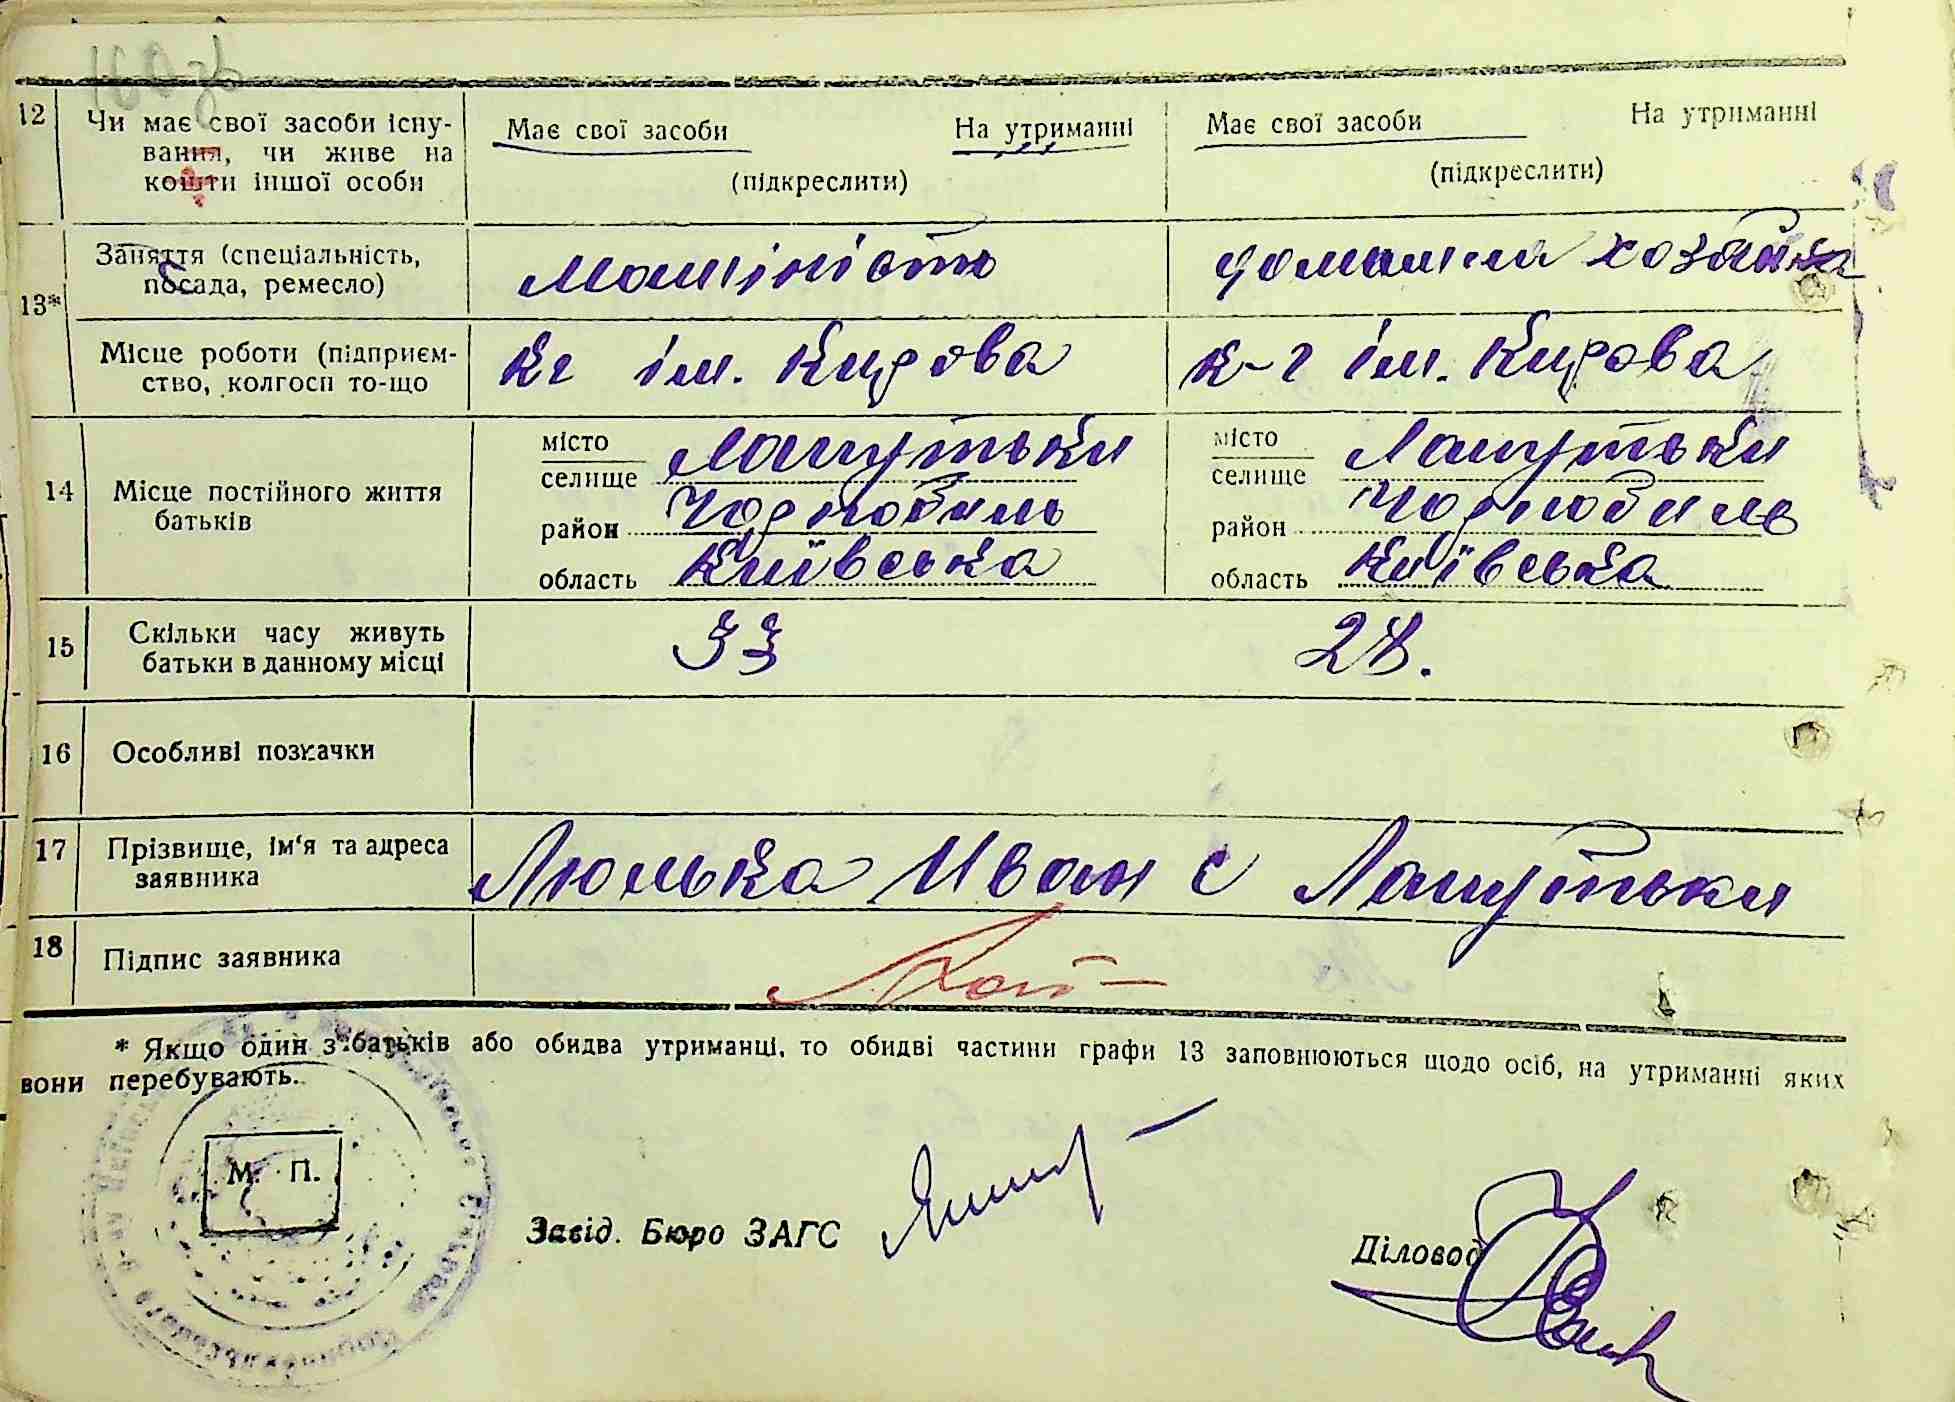 12 Чи має свої засоби існу- Має свої засоби На утриманні Має свої засоби На утриманні
вання, чи живе на
кошти іншої особи (підкреслити) (підкреслити)
13* Заняття (спеціальність, посада, ремесло) Машіність домашня хозайка
Місце роботи (підприєм- ство, колгосп то-що кг ім. Кирова к-г ім. Кирова
14 Місце постійного життя батьків
місто Лапутьки місто Лапутьки
селище селище
район Чорнобиль район Чорнобиль
область Київська область Київська
15 Скільки часу живуть 33 28.
батьки в данному місці
16 Особливі позначки
17 Прізвище, ім'я та адреса Люлька Иван с Лапутьки
заявника
18 Підпис заявника
* Якщо один з батьків або обидва утриманці, то обидві частини графи 13 заповнюються щодо осіб, на утриманні яких
вони перебувають.
М. П.
Завід. Бюро ЗАГС
Діловод